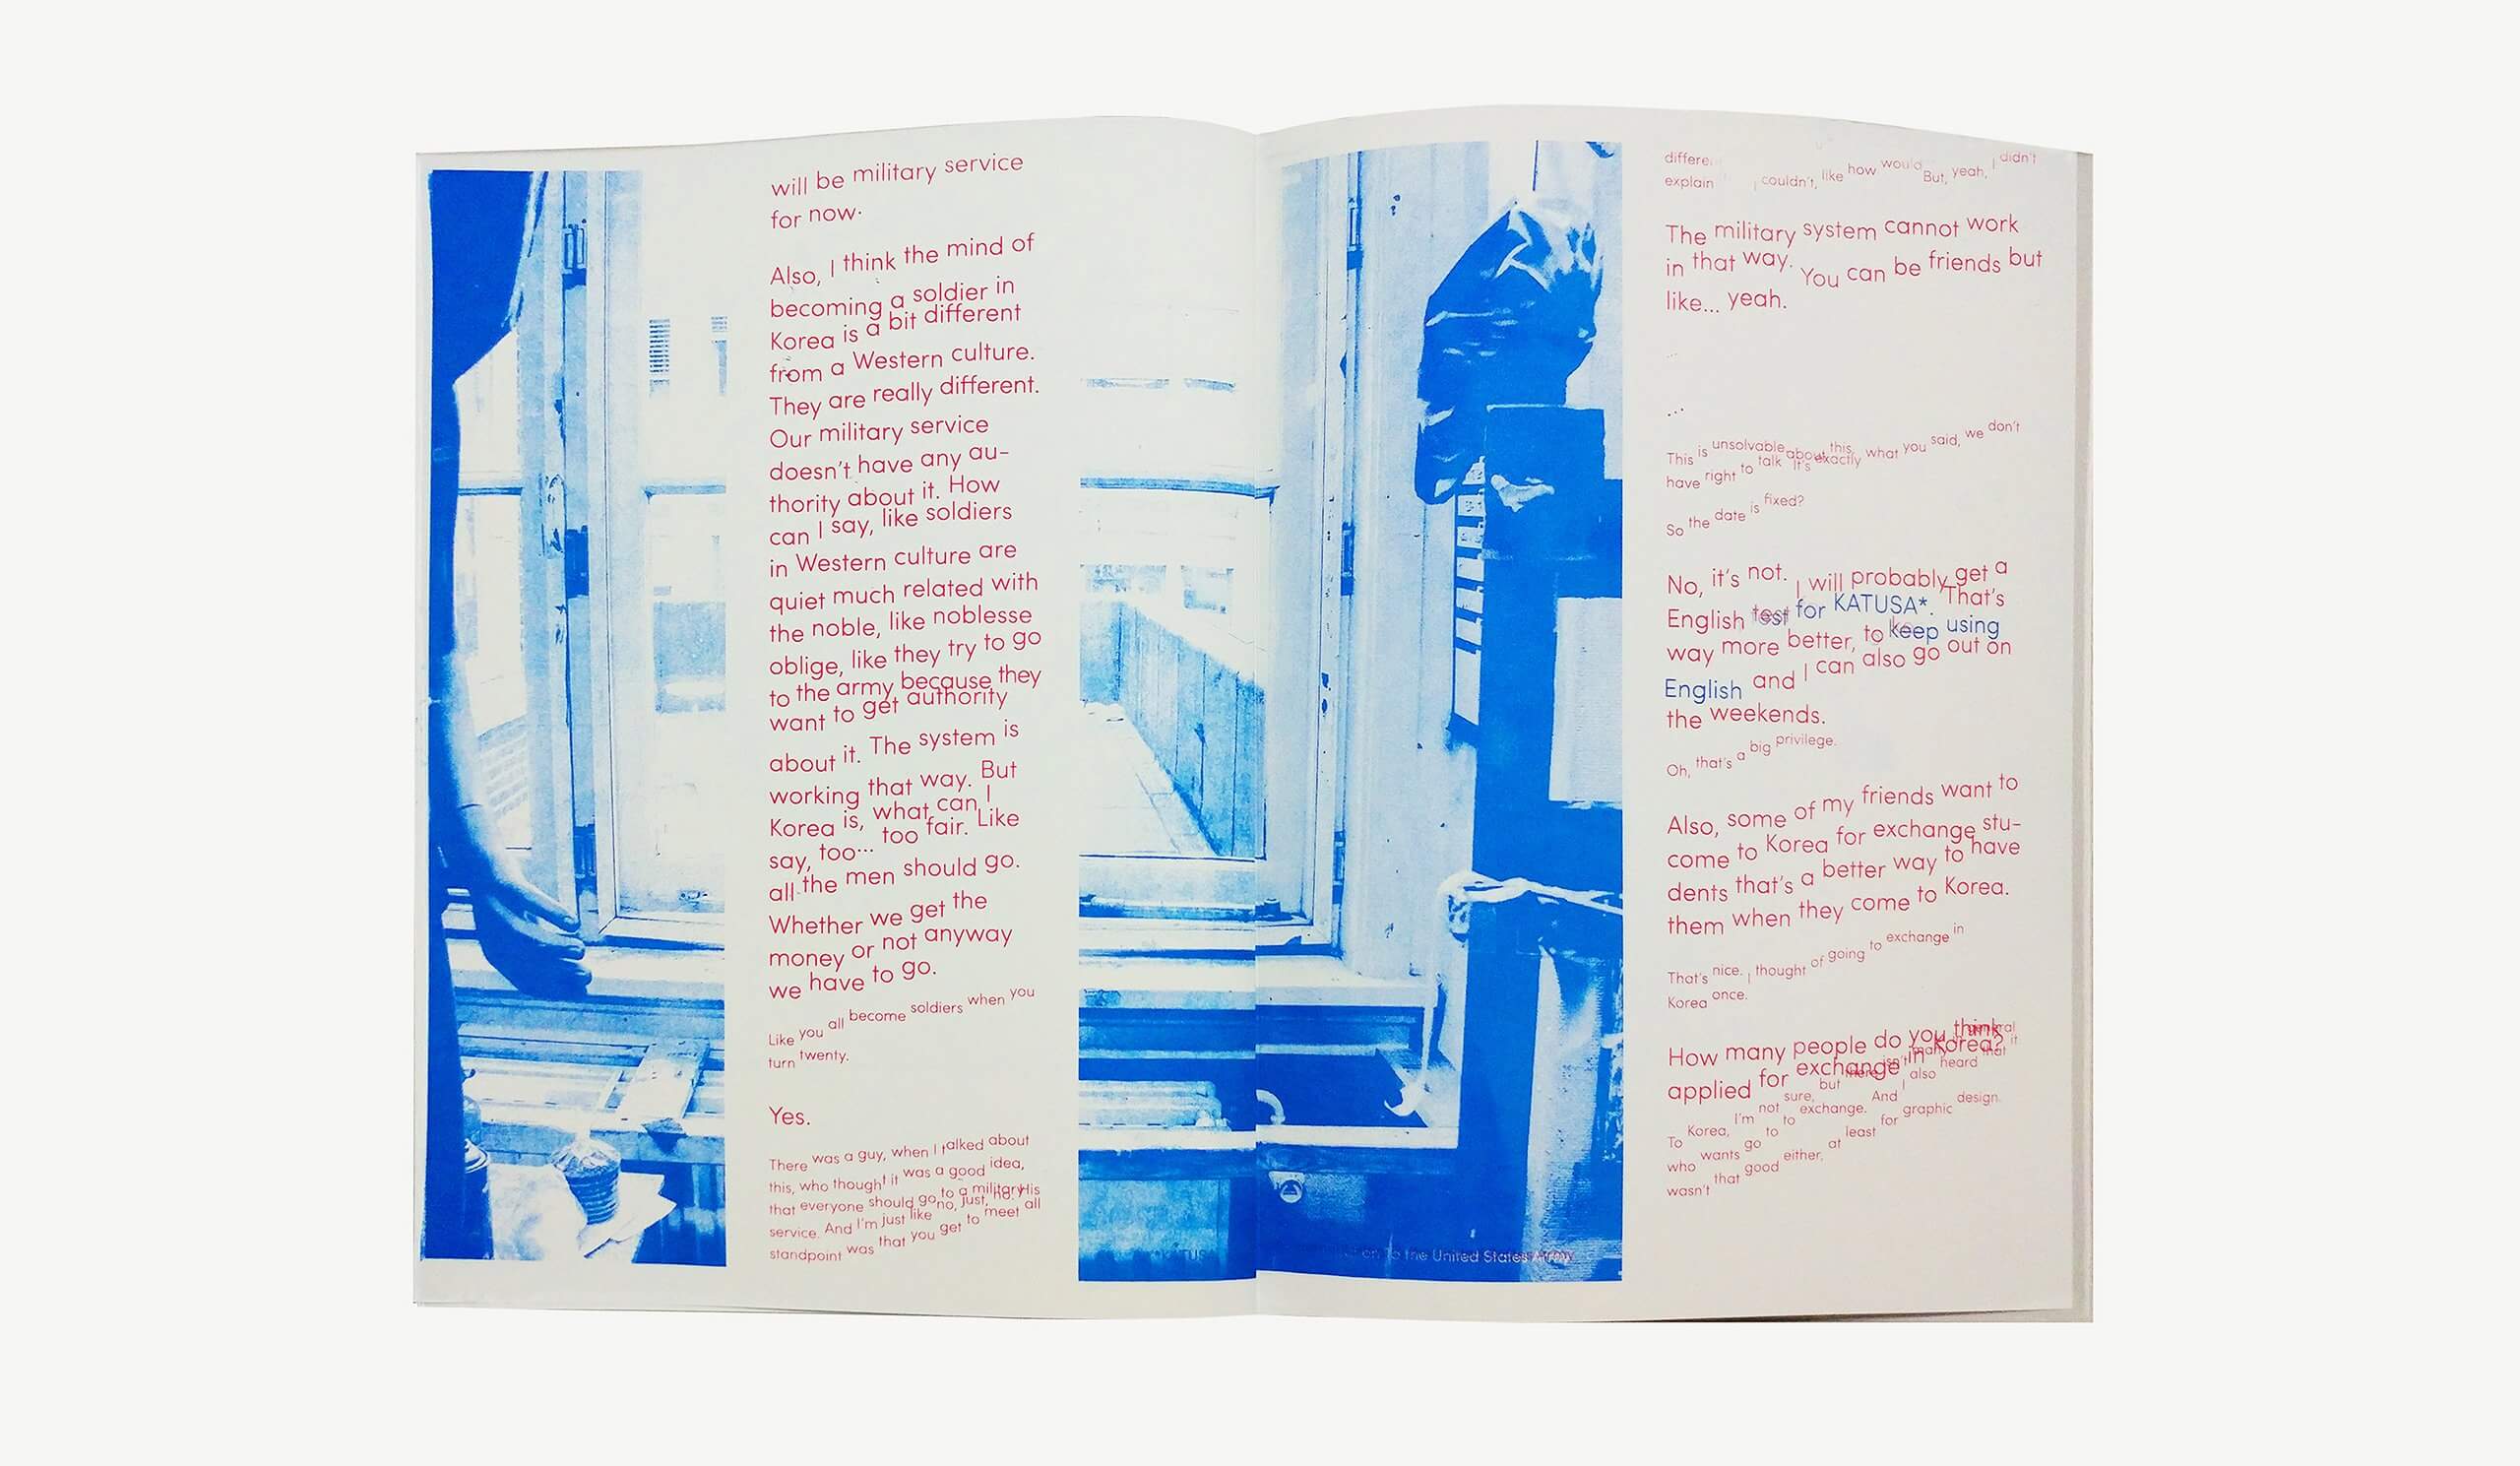 will be military service
for now.
Also, I think the mind of
becoming a soldier in
Korea is a bit different
from a Western culture.
They are really different.
Our military service
doesn't have any au-
thority about it. How
can I say, like soldiers
in Western culture are
quiet much related with
the noble, like noblesse
oblige, like they try to go
to the army because they
want to get authority
about it. The system is
working that way. But
Korea is, what can I
say, too... too fair. Like
all the men should go.
Whether we get the
money or not anyway
we have to go.
Like you all become soldiers when you
turn twenty.
Yes.
There was a guy, when I talked about
this, who thought it was a good idea,
that everyone should go to a military
service. And I'm just like no, just, no. His
standpoint was that you get to meet all
But, yeah, I didn't
explain I couldn't, like how would
The military system cannot work
in that way. You can be friends but
like... yeah.
...
...
This is unsolvable. It's exactly what you said, we don't
have right to talk about this.
So the date is fixed?
No, it's not. I will probably get a
English test for KATUSA*. That's
way more better, to keep using
English and I can also go out on
the weekends.
Oh, that's a big privilege.
Also, some of my friends want to
come to Korea for exchange stu-
dents that's a better way to have
them when they come to Korea.
That's nice. I thought of going to exchange in
Korea once.
How many people do you think
applied for exchange in Korea?
To Korea, I'm not sure, but there isn't many general
who wants to go to exchange. And I also heard that it
wasn't that good either, at least for graphic design.
on to the United States Army